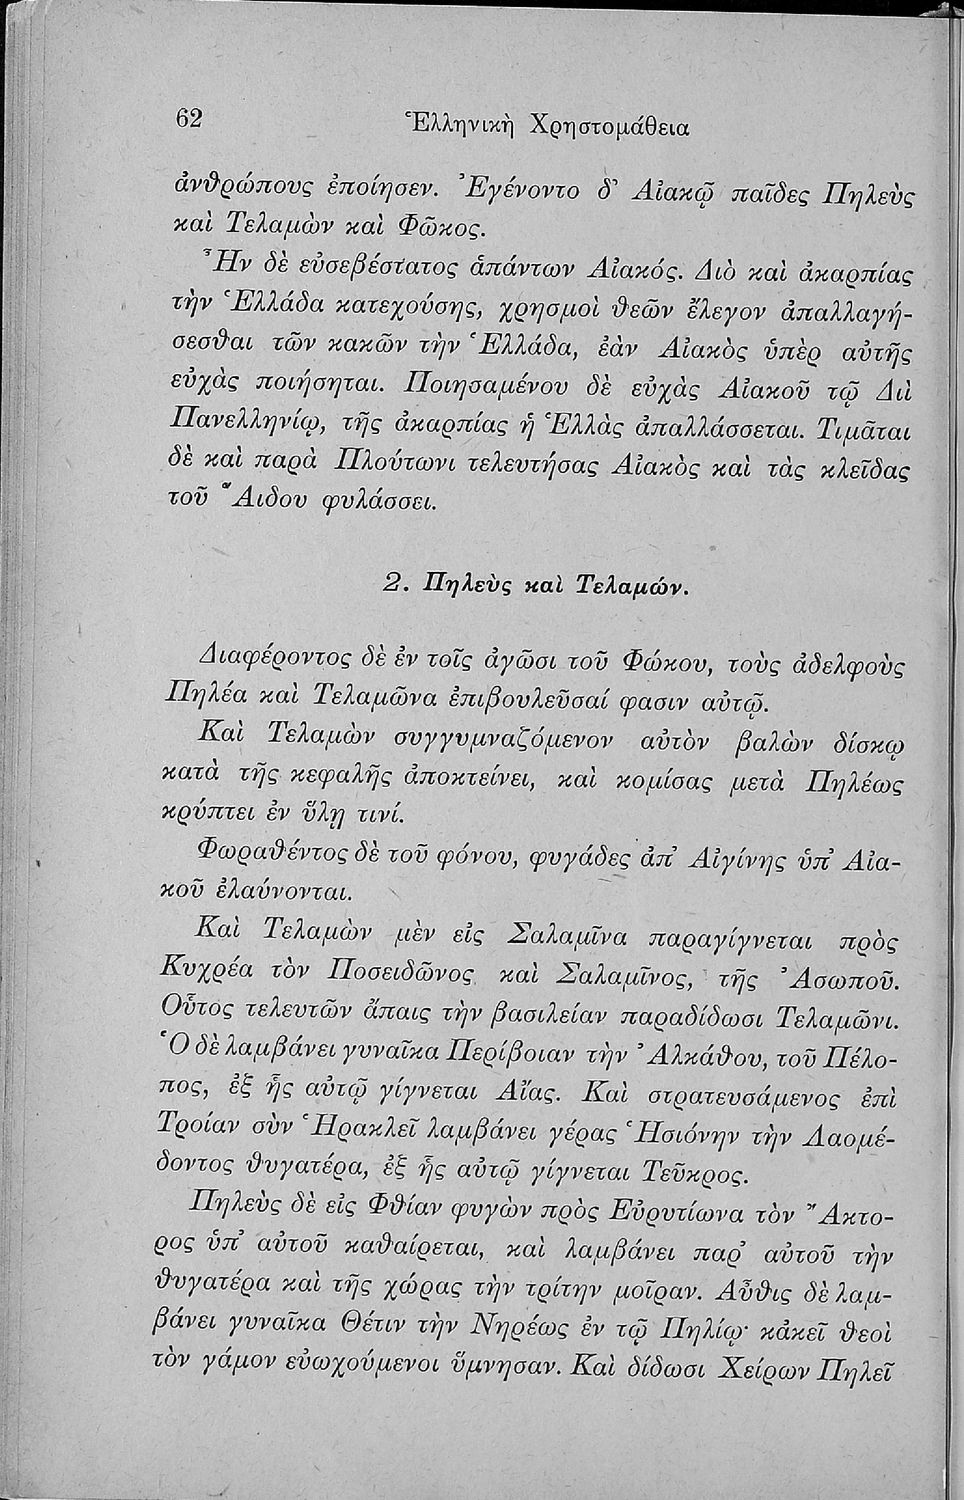 62 Ἑλληνικὴ Χρηστομάθεια
ἀνθρώπους ἐποίησεν. Ἐγένοντο δ' Αἰακῷ παῖδες Πηλεὺς
καὶ Τελαμὼν καὶ Φῶκος.
Ἦν δὲ εὐσεβέστατος ἁπάντων Αἰακός. Διὸ καὶ ἀκαρπίας
τὴν Ἑλλάδα κατεχούσης, χρησμοὶ θεῶν ἔλεγον ἀπαλλαγή-
σεσθαι τῶν κακῶν τὴν Ἑλλάδα, ἐὰν Αἰακὸς ὑπὲρ αὐτῆς
εὐχὰς ποιήσηται. Ποιησαμένου δὲ εὐχὰς Αἰακοῦ τῷ Διὶ
Πανελληνίῳ, τῆς ἀκαρπίας ἡ Ἑλλὰς ἀπαλλάσσεται. Τιμᾶται
δὲ καὶ παρὰ Πλούτωνι τελευτήσας Αἰακὸς καὶ τὰς κλεῖδας
τοῦ Ἅιδου φυλάσσει.
2. Πηλεὺς καὶ Τελαμών.
Διαφέροντος δὲ ἐν τοῖς ἀγῶσι τοῦ Φώκου, τοὺς ἀδελφοὺς
Πηλέα καὶ Τελαμῶνα ἐπιβουλεῦσαί φασιν αὐτῷ.
Καὶ Τελαμὼν συγγυμναζόμενον αὐτὸν βαλὼν δίσκῳ
κατὰ τῆς κεφαλῆς ἀποκτείνει, καὶ κομίσας μετὰ Πηλέως
κρύπτει ἐν ὕλῃ τινί.
Φωραθέντος δὲ τοῦ φόνου, φυγάδες ἀπ' Αἰγίνης ὑπ' Αἰα-
κοῦ ἐλαύνονται.
Καὶ Τελαμὼν μὲν εἰς Σαλαμῖνα παραγίγνεται πρὸς
Κυχρέα τὸν Ποσειδῶνος καὶ Σαλαμῖνος, τῆς Ἀσωποῦ.
Οὗτος τελευτῶν ἄπαις τὴν βασιλείαν παραδίδωσι Τελαμῶνι.
Ὁ δὲ λαμβάνει γυναῖκα Περίβοιαν τὴν Ἀλκάθου, τοῦ Πέλο-
πος, ἐξ ἧς αὐτῷ γίγνεται Αἴας. Καὶ στρατευσάμενος ἐπὶ
Τροίαν σὺν Ἡρακλεῖ λαμβάνει γέρας Ἡσιόνην τὴν Λαομέ-
δοντος θυγατέρα, ἐξ ἧς αὐτῷ γίγνεται Τεῦκρος.
Πηλεὺς δὲ εἰς Φθίαν φυγὼν πρὸς Εὐρυτίωνα τὸν Ἄκτο-
ρος ὑπ' αὐτοῦ καθαίρεται, καὶ λαμβάνει παρ' αὐτοῦ τὴν
θυγατέρα καὶ τῆς χώρας τὴν τρίτην μοῖραν. Αὖθις δὲ λαμ-
βάνει γυναῖκα Θέτιν τὴν Νηρέως ἐν τῷ Πηλίῳ· κἀκεῖ θεοὶ
τὸν γάμον εὐωχούμενοι ὕμνησαν. Καὶ δίδωσι Χείρων Πηλεῖ